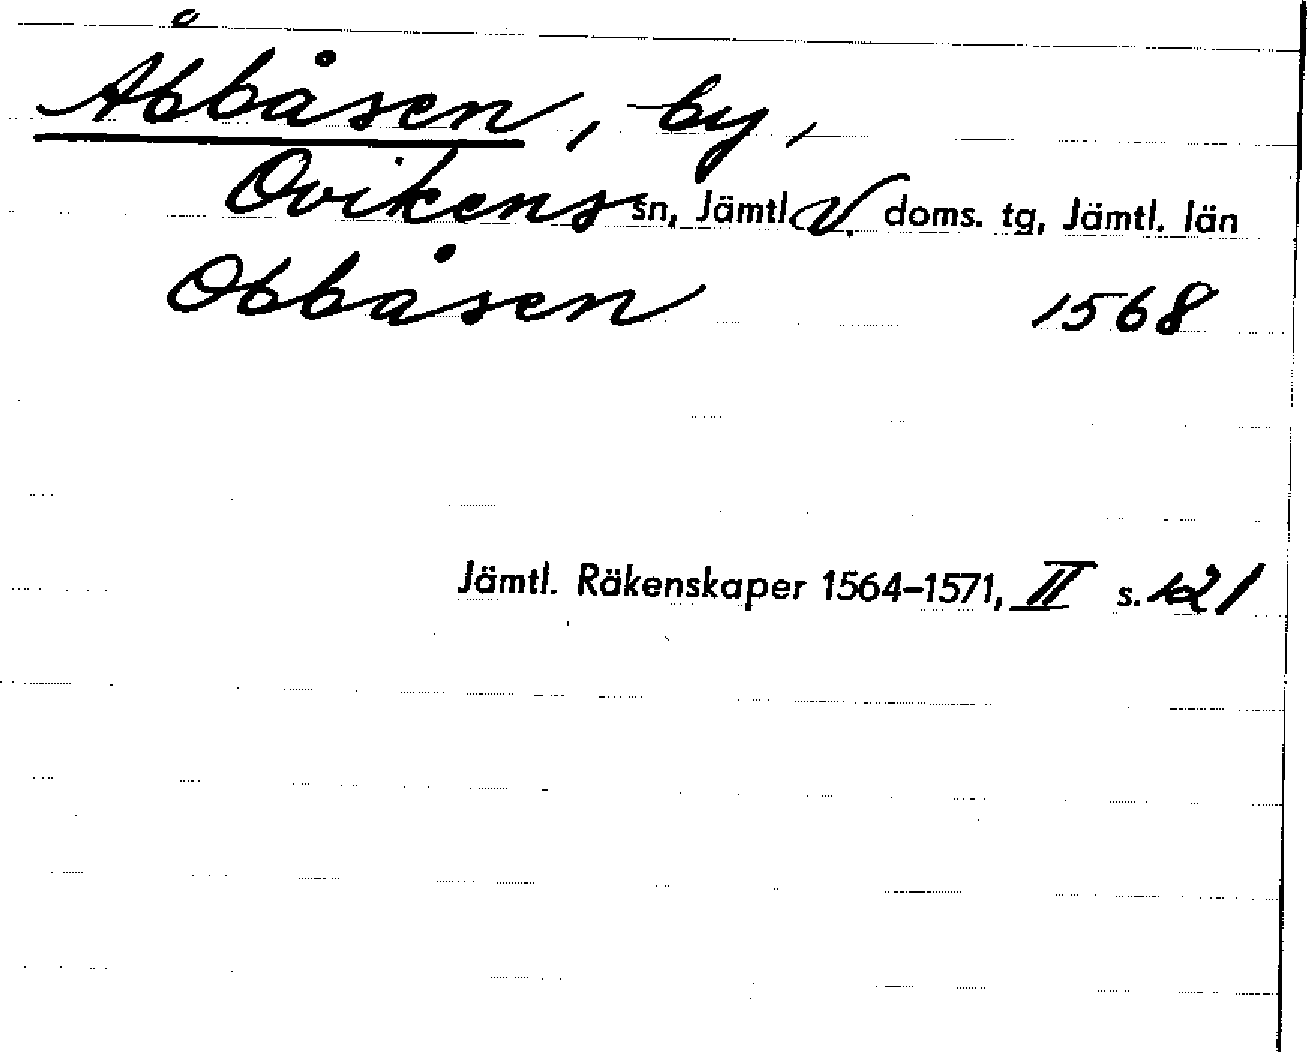 Åbbåsen, by,
Ovikens sn, Jämtl. V. doms. tg, Jämtl. län
Obbåsen 1568
Jämtl. Räkenskaper 1564–1571, II s. 121